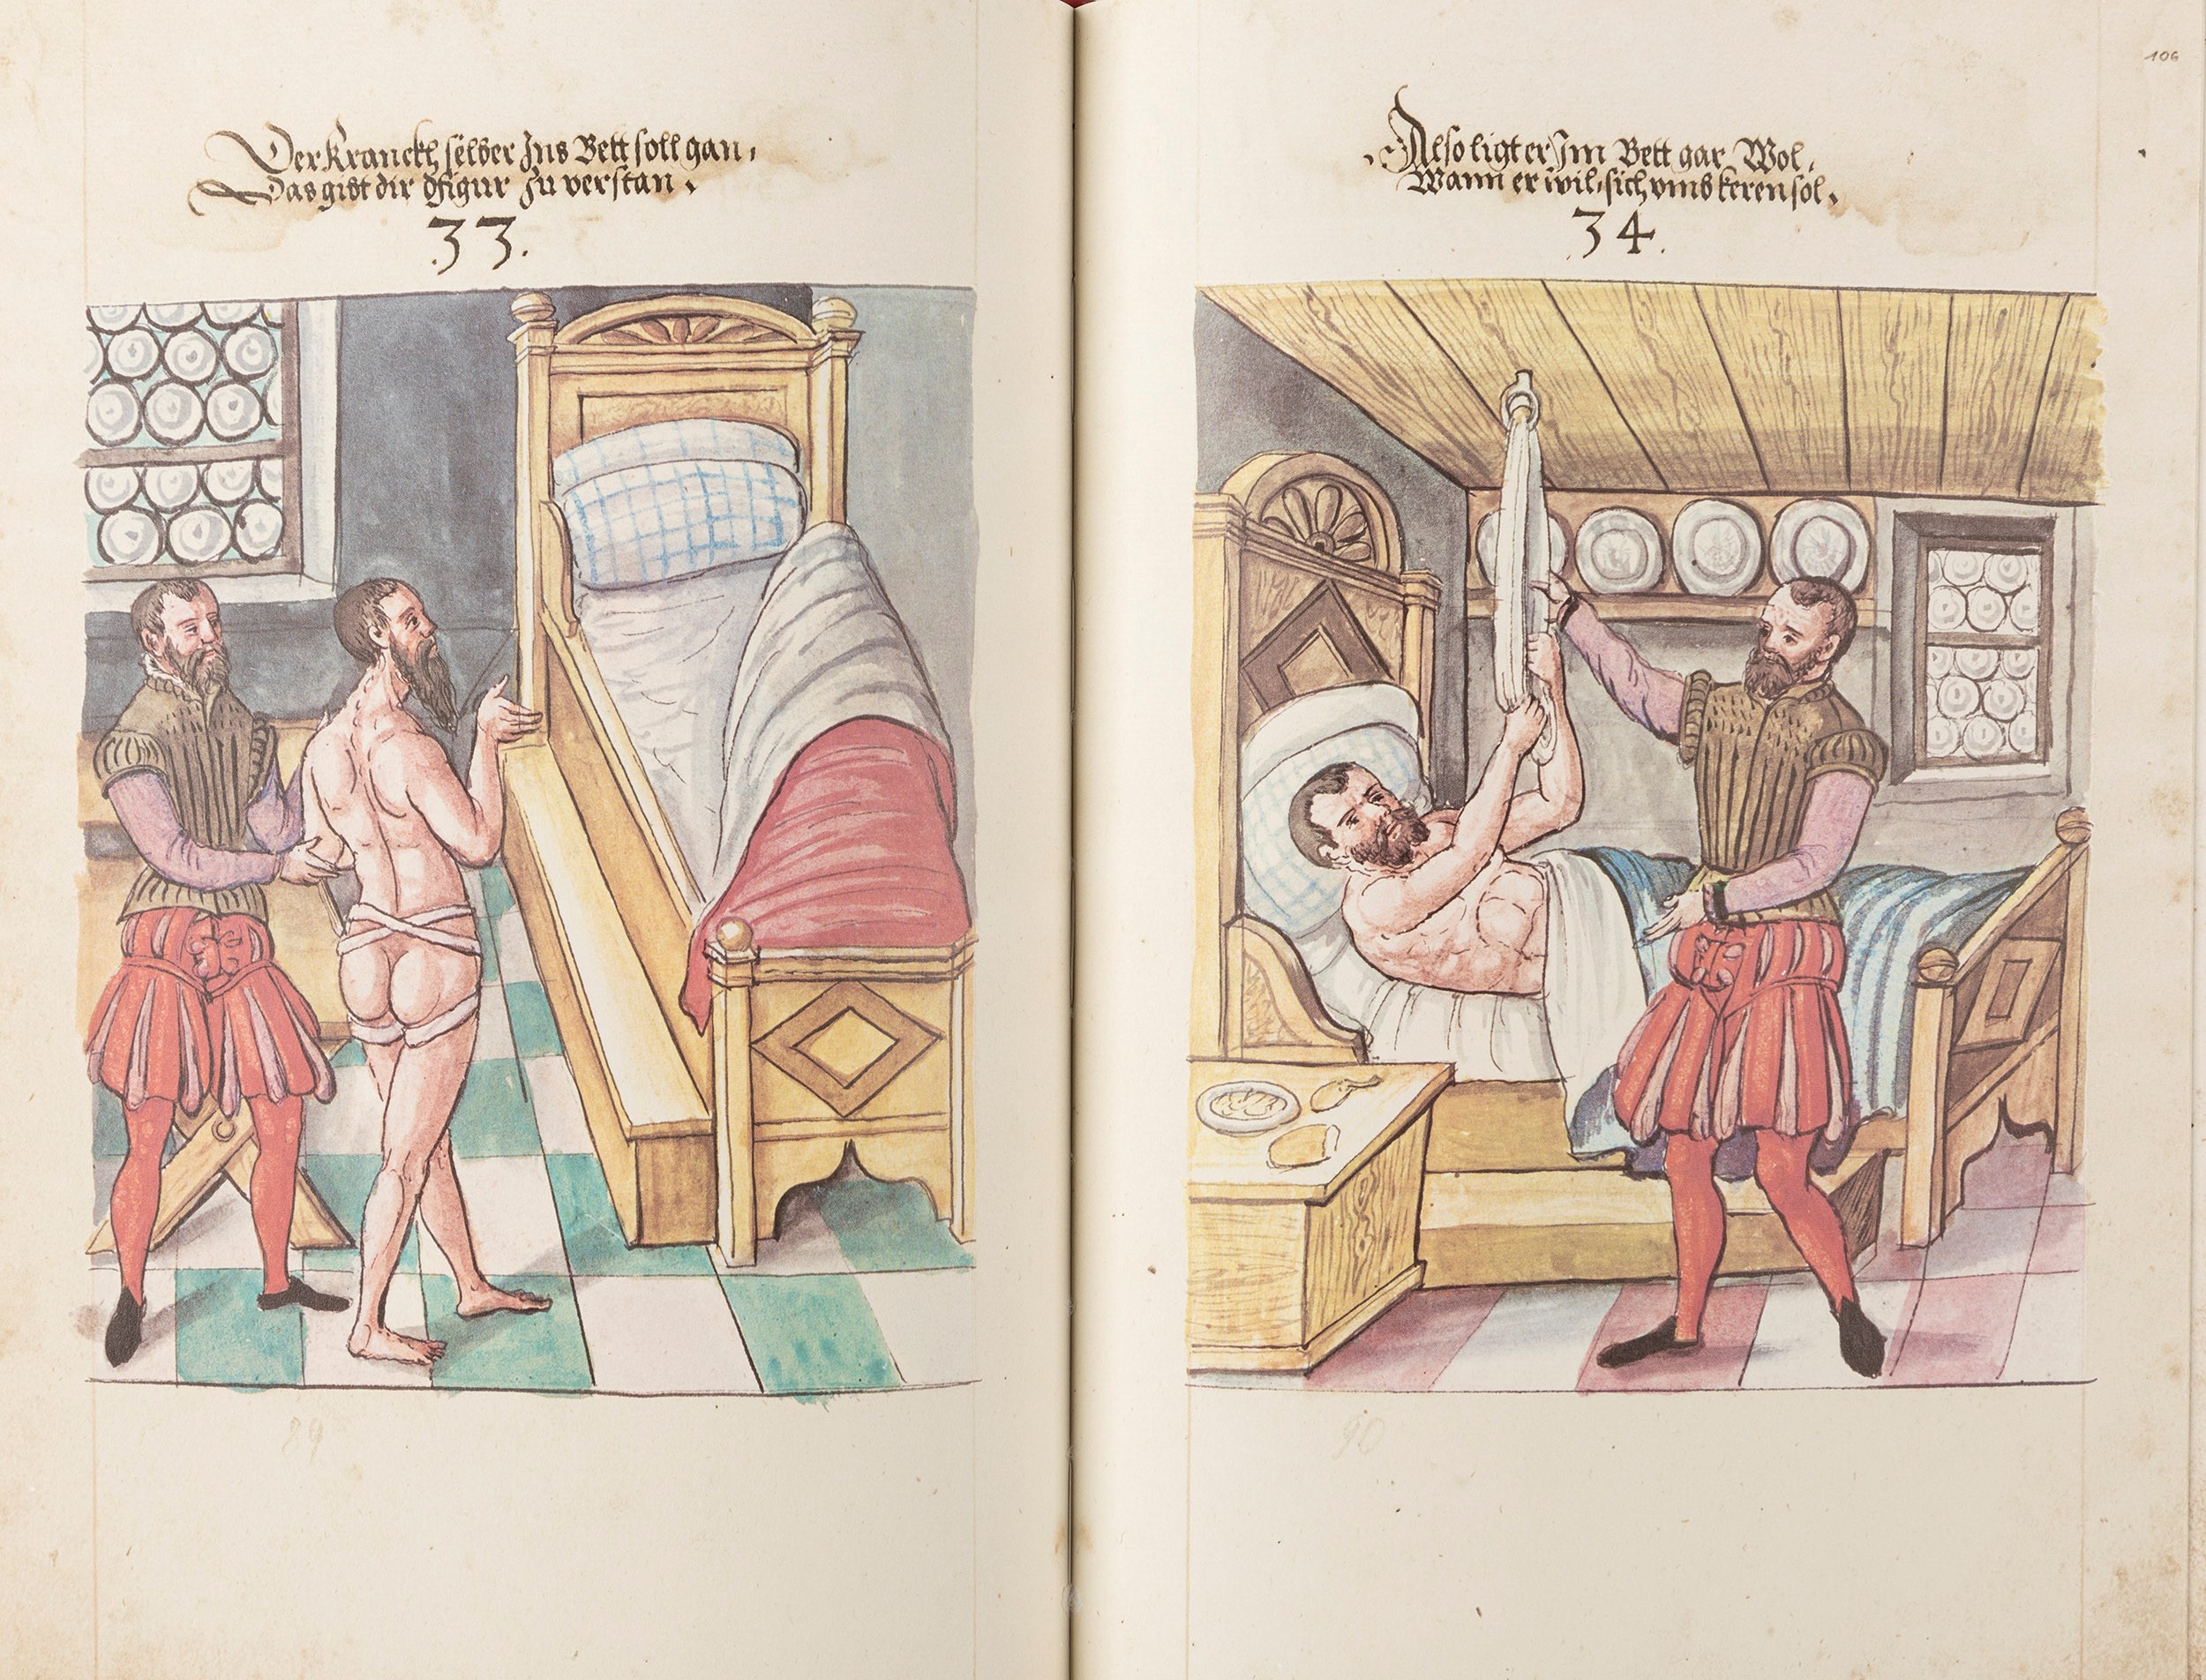 Der Kranckh selber Ins Bett soll gan,
Das gibt dir dfigur zu verstan.
.33.
89
106
Also ligt er Im Bett gar Wol,
Wann er wil, sich umbkeren sol.
34.
90